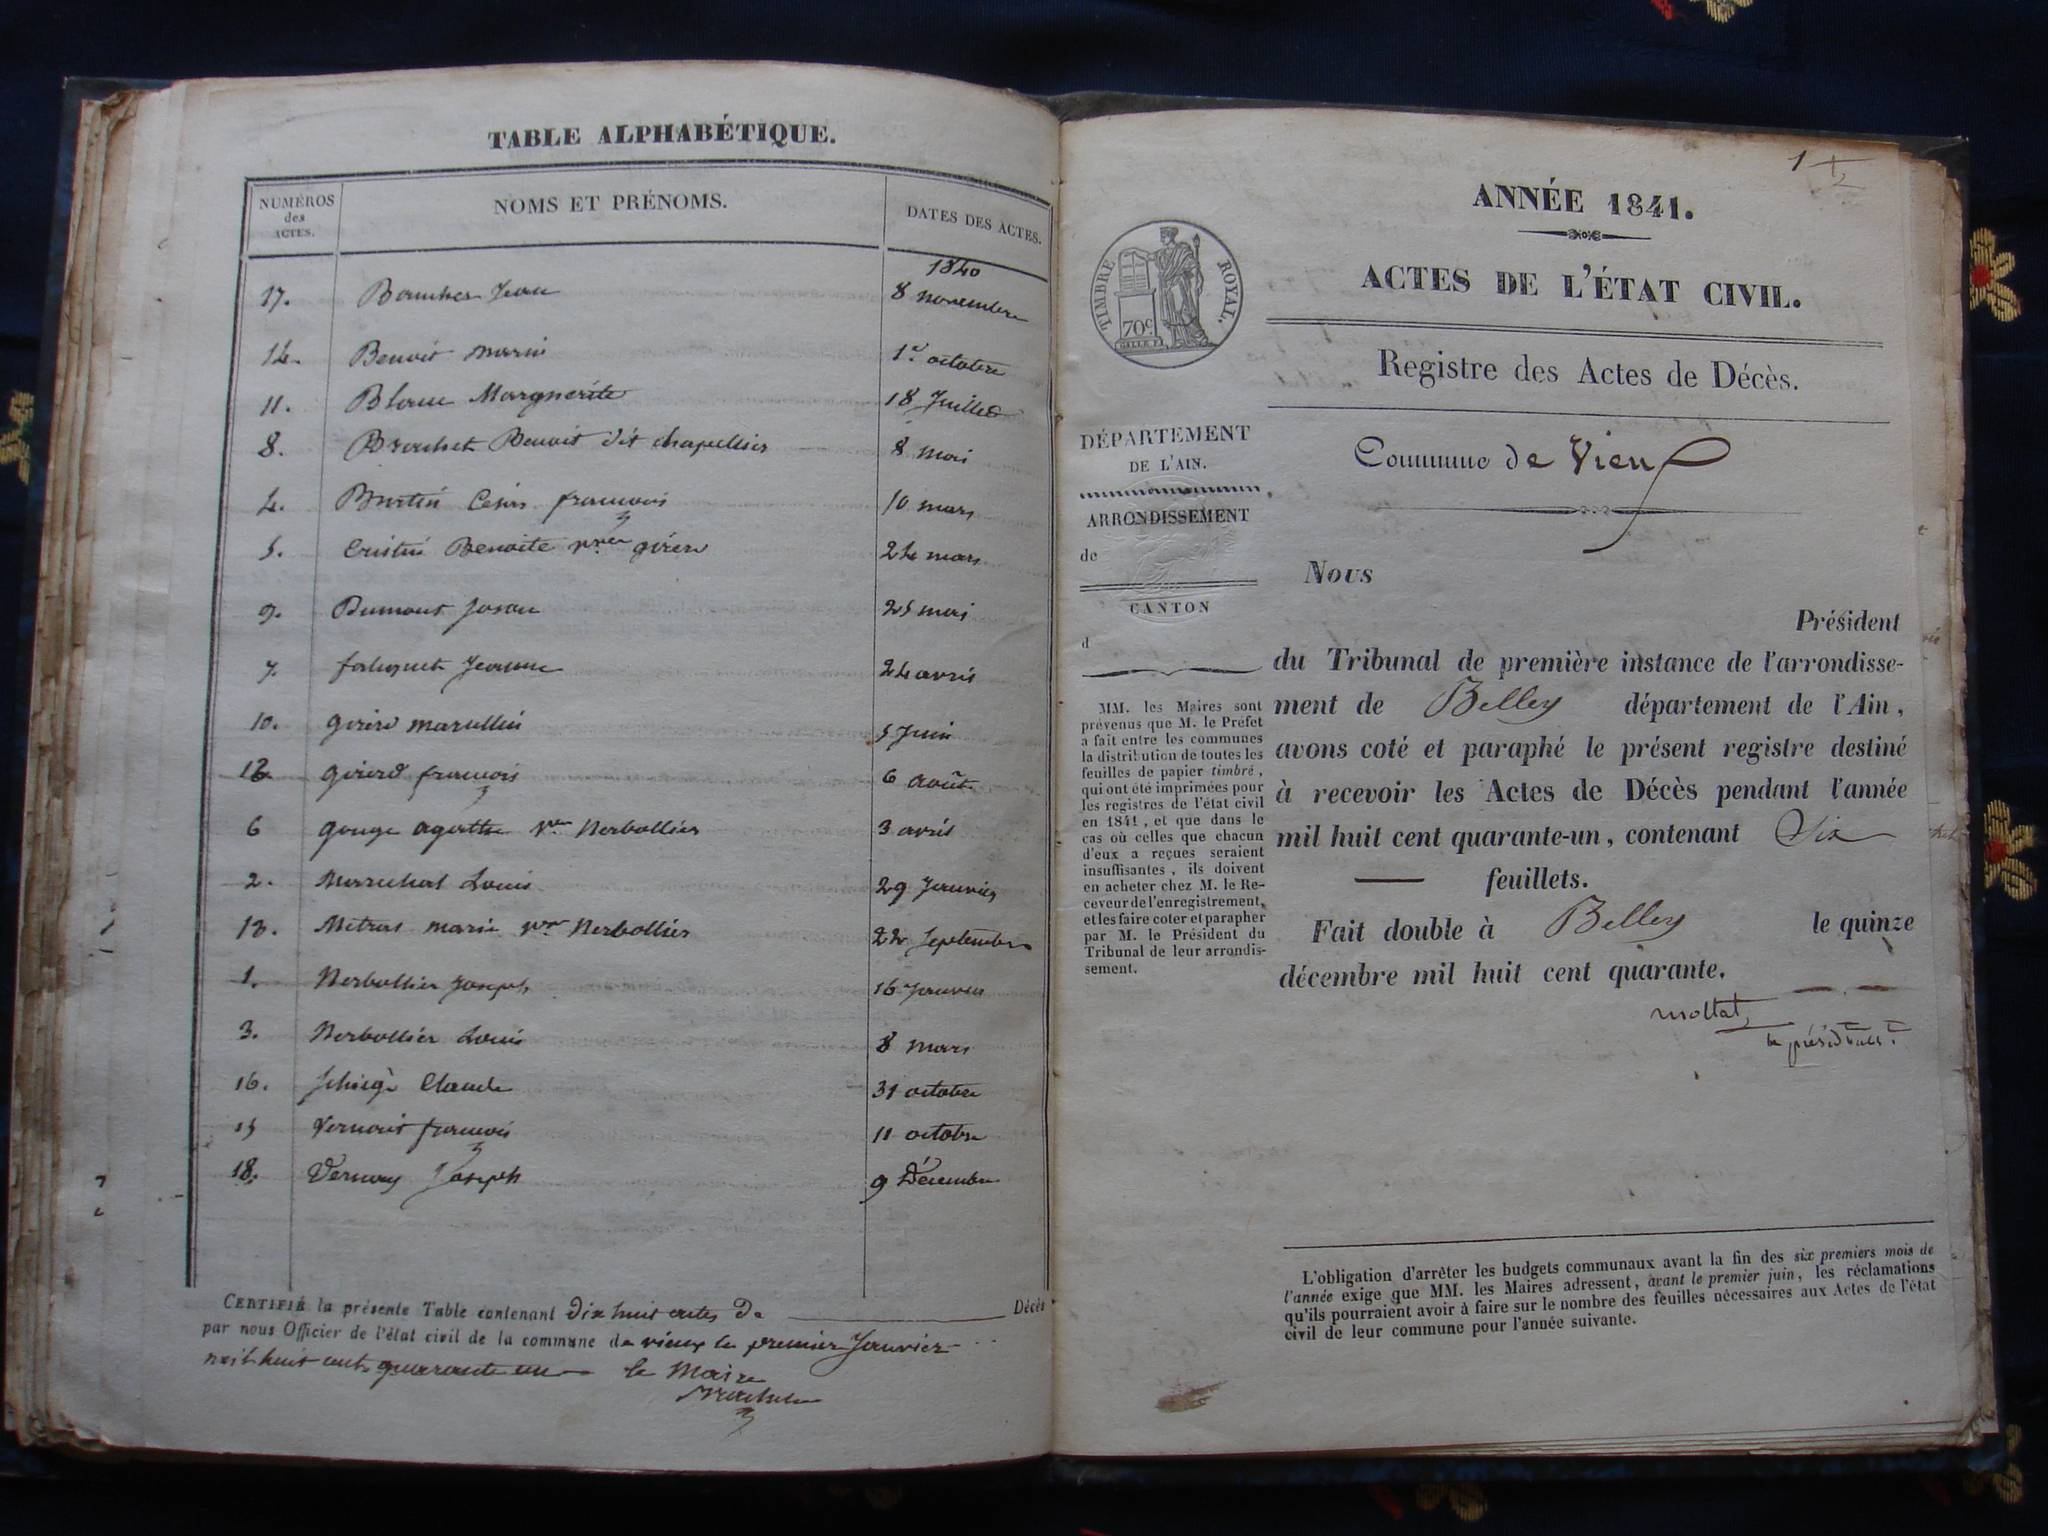 TABLE ALPHABÉTIQUE.
NUMÉROS des ACTES. NOMS ET PRÉNOMS. DATES DES ACTES.
1840
17. Jean 8 novembre
14. Benoit Marie 1.r octobre
11. Blanc Marguerite 18 Juillet
8. Brochet Benoit dit chapellier 8 mai
4. françois 10 mars
5. Benoite girerd 24 mars
9. Dumont 25 mai
7. Jeanne 24 avril
10. girerd marcellin 5 Juin
12 girerd françois 6 août
6 gouge agathe Nerbollier 3 avril
2. Marechal Louis 29 Janvier
13. Mitras marie Nerbollier 22 Septembre
1. Nerbollier Joseph 16 Janvier
3. Nerbollier Louis 8 mars
16. Claude 31 octobre
15 françois 11 octobre
18. Joseph 9 Décembre
CERTIFIÉ la présente Table contenant dix huit actes De Décès
par nous Officier de l'état civil de la commune de vieux le premier Janvier
mil huit cent quarante un le Maire
1
ANNÉE 1841.
ACTES DE L'ÉTAT CIVIL.
TIMBRE ROYAL.
70c
Registre des Actes de Décès.
Commune de Vieu
DÉPARTEMENT
DE L'AIN.
ARRONDISSEMENT
de
CANTON
d
MM. les Maires sont
prévenus que M. le Préfet
a fait entre les communes
la distribution de toutes les
feuilles de papier timbré,
qui ont été imprimées pour
les registres de l'état civil
en 1841, et que dans le
cas où celles que chacun
d'eux a reçues seraient
insuffisantes, ils doivent
en acheter chez M. le Re-
ceveur de l'enregistrement,
et les faire coter et parapher
par M. le Président du
Tribunal de leur arrondis-
sement.
Nous
Président
du Tribunal de première instance de l'arrondisse-
ment de Belley département de l'Ain,
avons coté et paraphé le présent registre destiné
à recevoir les Actes de Décès pendant l'année
mil huit cent quarante-un, contenant Six
feuillets.
Fait double à Belley le quinze
décembre mil huit cent quarante.
mollat
L'obligation d'arrêter les budgets communaux avant la fin des six premiers mois de
l'année exige que MM. les Maires adressent, avant le premier juin, les réclamations
qu'ils pourraient avoir à faire sur le nombre des feuilles nécessaires aux Actes de l'état
civil de leur commune pour l'année suivante.